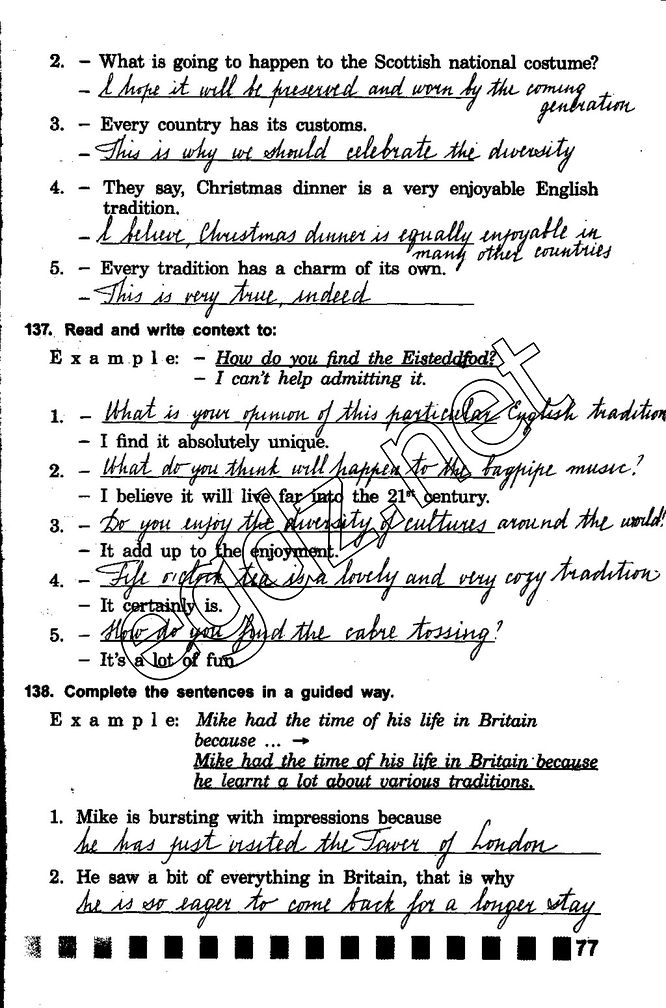 2. – What is going to happen to the Scottish national costume?
– I hope it will be preserved and worn by the coming
generation
3. – Every country has its customs.
– This is why we should celebrate the diversity
4. – They say, Christmas dinner is a very enjoyable English
tradition.
– I believe, Christmas dinner is equally enjoyable in
many other countries
5. – Every tradition has a charm of its own.
– This is very true, indeed
137. Read and write context to:
E x a m p l e: – How do you find the Eisteddfod?
– I can't help admitting it.
1. – What is your opinion of this particular English tradition
– I find it absolutely unique.
2. – What do you think will happen to the bagpipe music?
– I believe it will live far into the 21st century.
3. – Do you enjoy the diversity of cultures around the world?
– It add up to the enjoyment.
4. – Fife o'clock tea is a lovely and very cozy tradition
– It certainly is.
5. – How do you find the cabre tossing?
– It's a lot of fun.
138. Complete the sentences in a guided way.
E x a m p l e: Mike had the time of his life in Britain
because ... →
Mike had the time of his life in Britain because
he learnt a lot about various traditions.
1. Mike is bursting with impressions because
he has just visited the Tower of London
2. He saw a bit of everything in Britain, that is why
he is so eager to come back for a longer stay
77
egdz.net